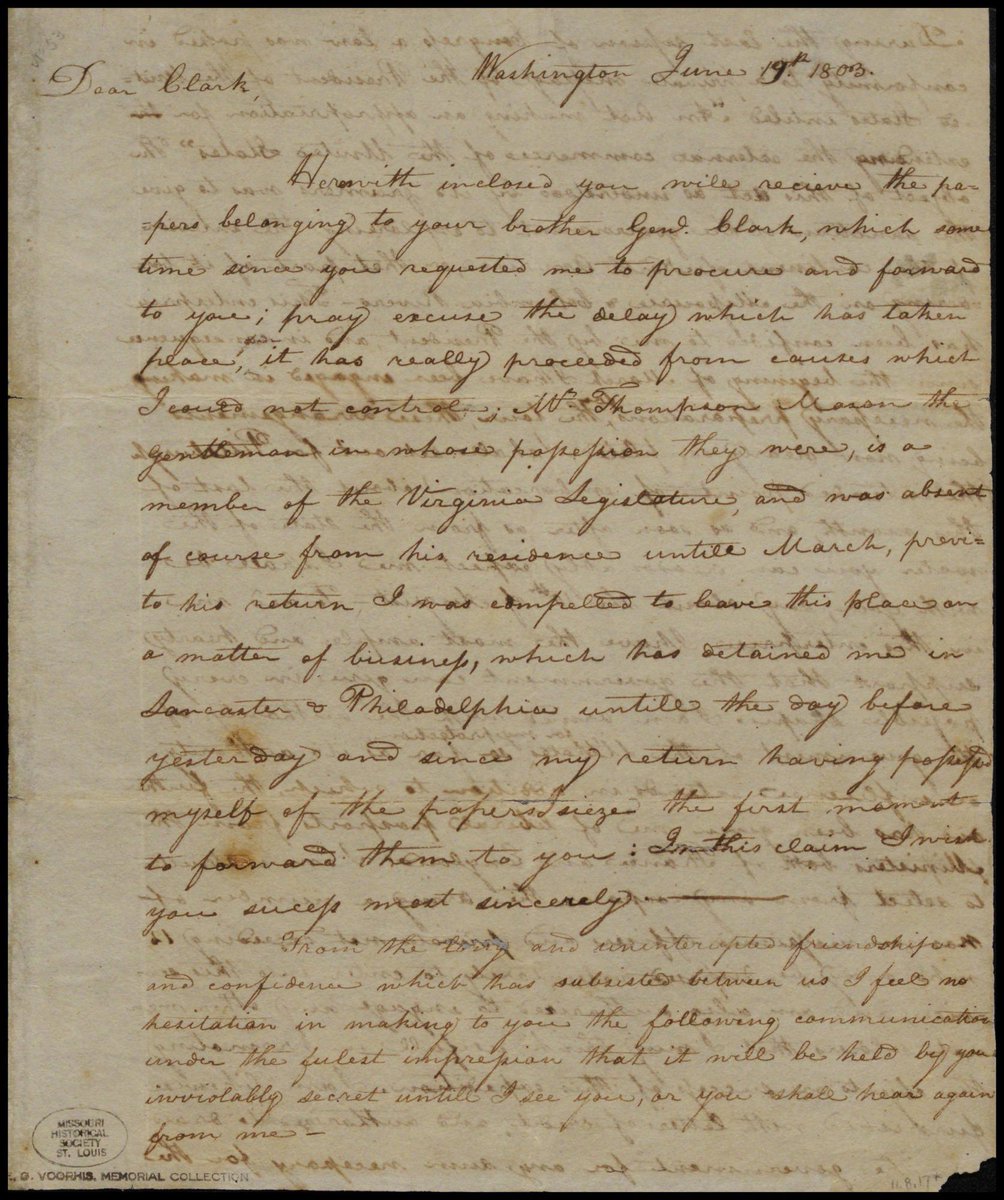 Washington June 19th. 1803.
Dear Clark,
Herewith inclosed you will recieve the pa-
-pers belonging to your brother Genl. Clark, which some
time since you requested me to procure and forward
to you; pray excuse the delay which has taken
place, it has really proceeded from causes which
I could not control; Mr. Thompson Mason the
gentleman in whose possession they were, is a
member of the Virginia Legislature, and was absent
of course from his residence untill March, previ-
to his return I was compelled to leave this place on
a matter of business, which has detained me in
Lancaster & Philadelphia untill the day before
yesterday and since my return having possessed
myself of the papers I sieze the first moment
to forward them to you: In this claim I wish
you sucess most sincerely
From the long and uninterupted friendship
and confidence which has subsisted between us I feel no
hesitation in making to you the following communication
under the fulest impression that it will be held by you
inviolably secret untill I see you, or you shall hear again
from me—
MISSOURI
HISTORICAL
SOCIETY
ST. LOUIS
G. VOORHIS, MEMORIAL COLLECTION